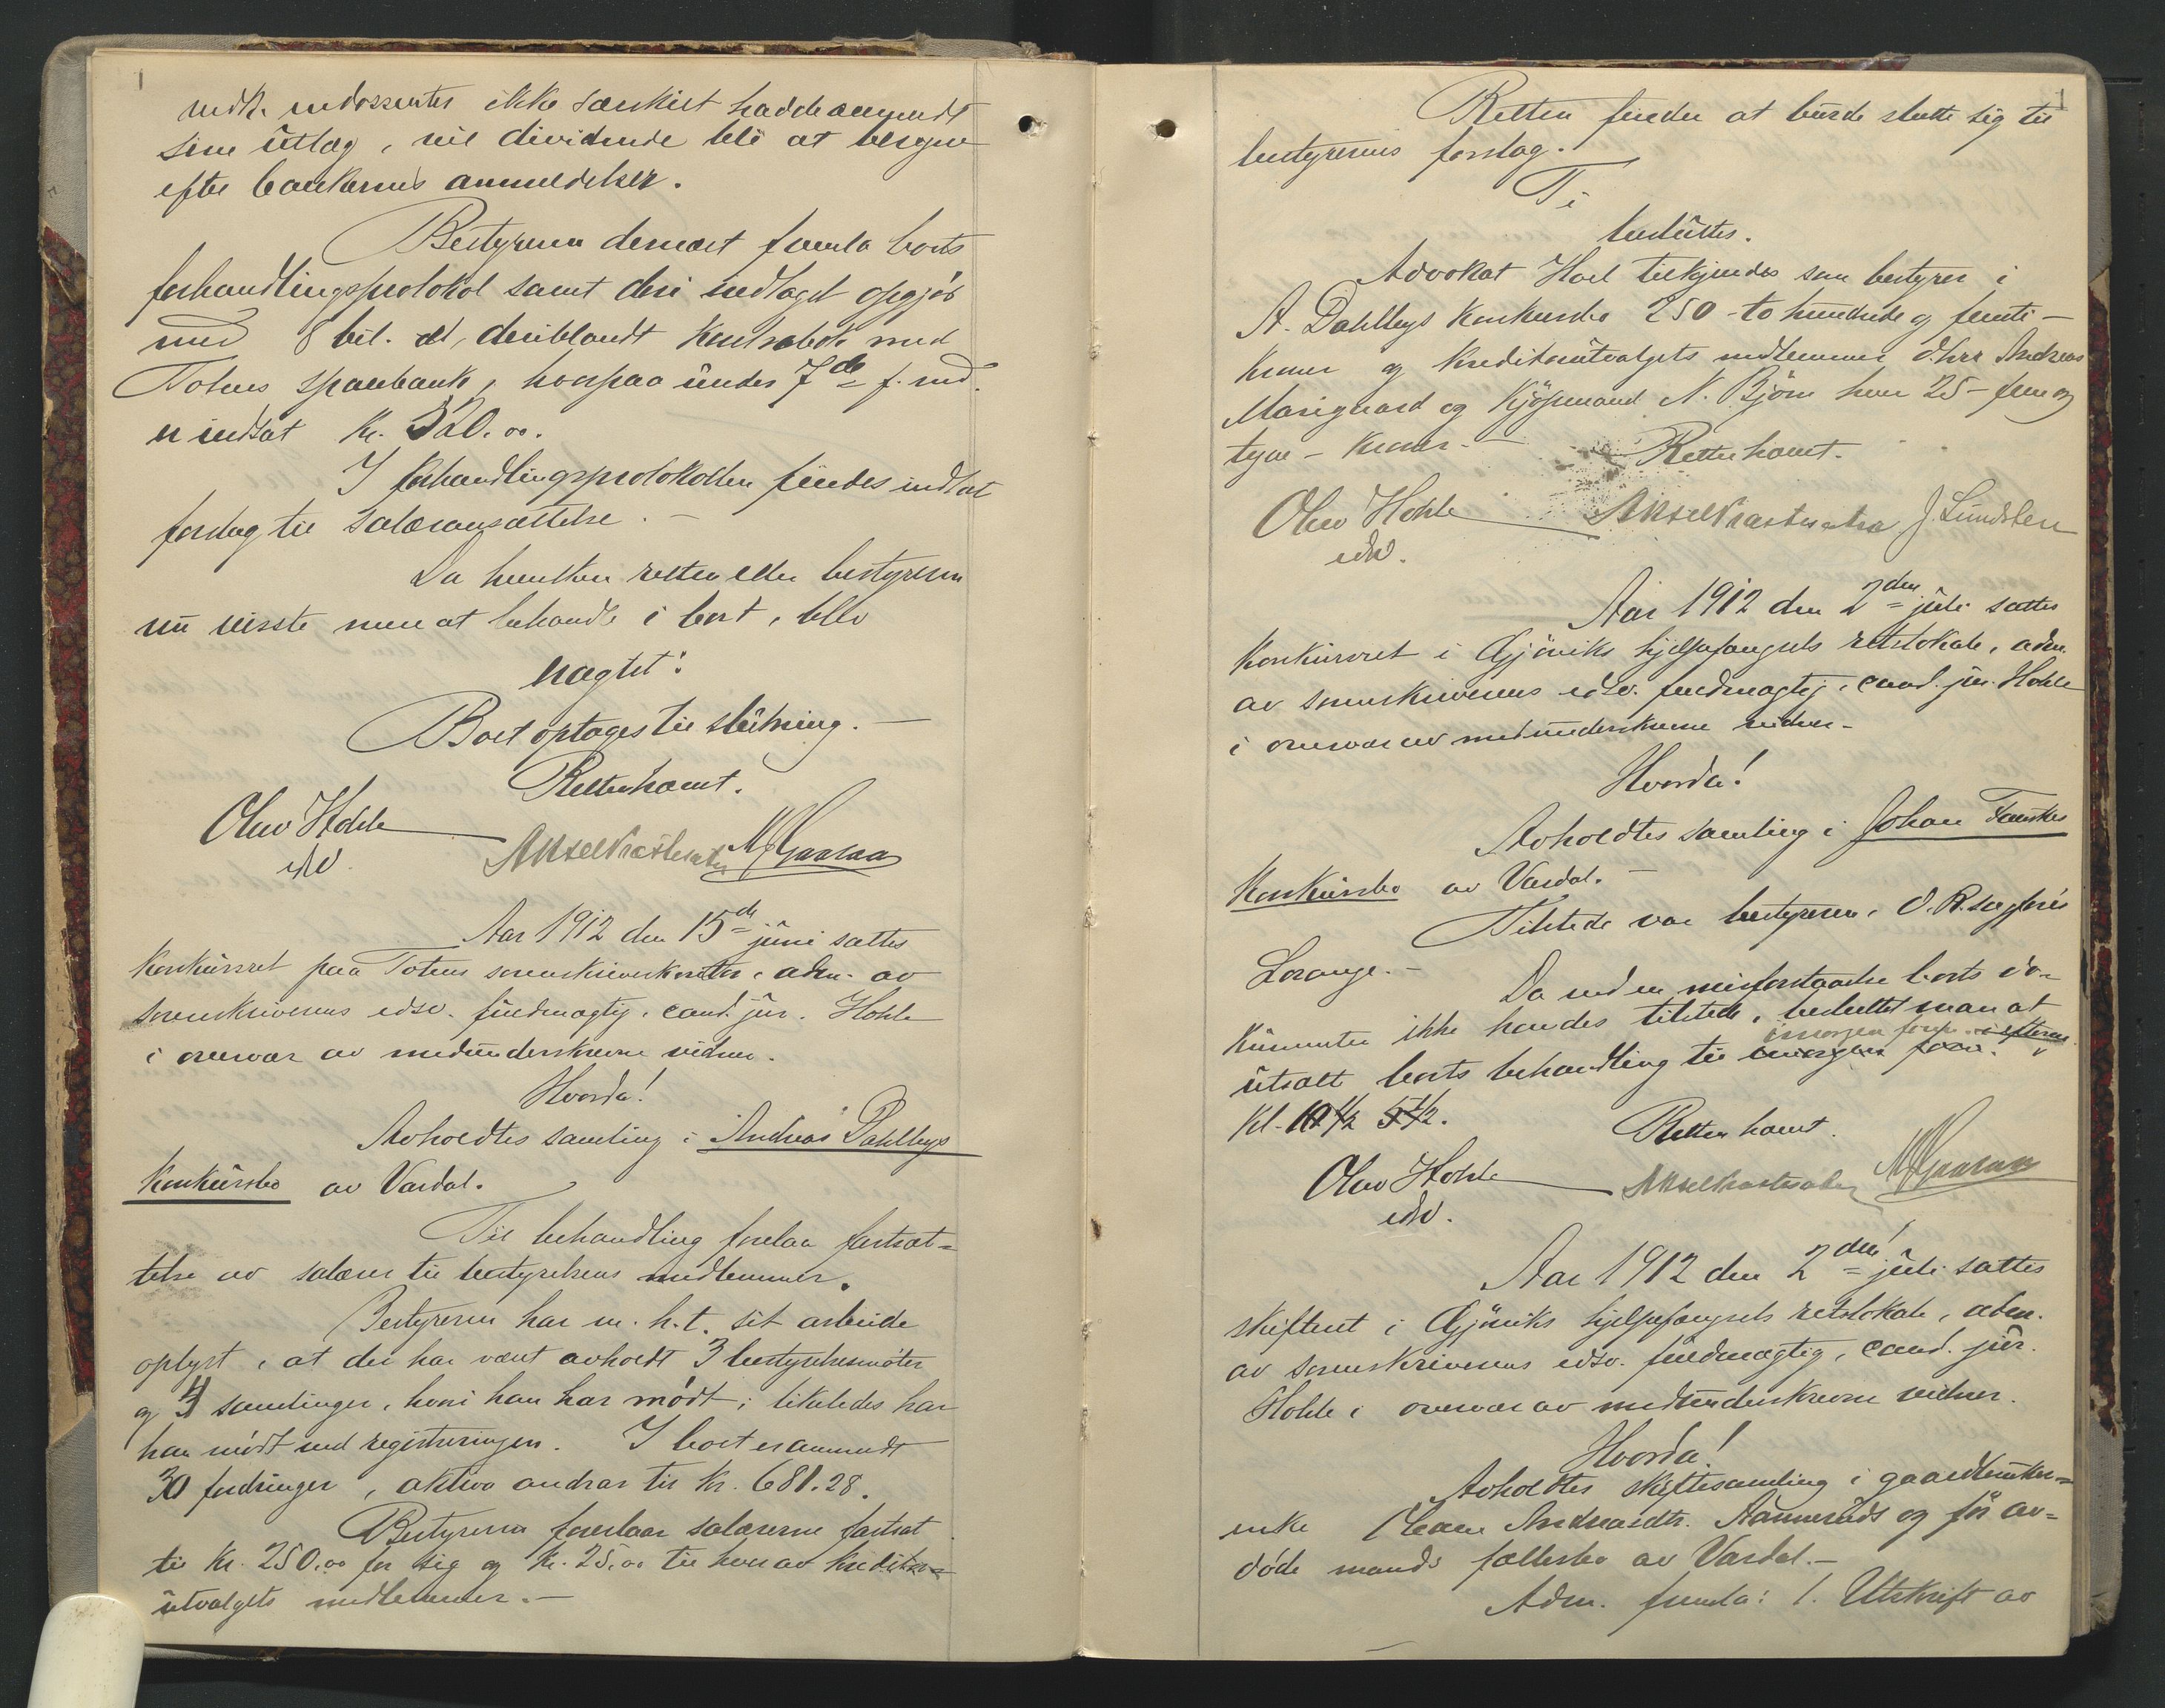 vedk. endossenter ikke særskilt hadde anmeldt
sine utlæg, vil dividende bli at beregne
efter bankernes anmeldelser.
Bestyreren dernæst fremla boets
forhandlingsprotokol samt deri indtaget opgjør
med 8 bil. deriblandt kontrabok med
Totens sparebank, hvorpaa under 7de f. md.
er indsat kr. 320.00.
I forhandlingsprotokollen findes indtat
forslag til salæransættelse. -
Da hverken retten eller bestyreren
nu visste mere at behandle i boet, blev
vægtet:
Boet optages til slutning. -
Retten hævet.
Olav Hohle
edsv.
Aar 1912 den 15de juni sattes
konkursret paa Totens sorenskriverkontor, adm. av
sorenskriverens edsv. fuldmægtig, cand. jur. Hohle
i overvær av medunderskrevne vidner.
Hvorda!
Avholdtes samling i Andreas Dahlbys
konkursbo av Vardal.
Til behandling forelaa fastsæt=
telse av salærer til bestyrelsens medlemmer.
Bestyreren har m. h. t. sit arbeide
oplyst, at der har været avholdt 3 bestyrelsesmøter
og 4 samlinger, hvori han har mødt; likeledes har
han mødt ved registreringen. I boet er anmeldt
30 fordringer, aktiva andrar til kr. 681.28.
Bestyreren foreslaar salærerne fastsat
til kr. 250.00 for sig og kr. 25.00 til hver av kreditor=
utvalgets medlemmer. -
Retten finder at burde slutte sig til
bestyrerens forslag.
Ti
besluttes.
Advokat Hoel tilkjendes som bestyrer i
A. Dahlbys konkursbo 250 - to hundrede og femti -
kroner og kreditorutvalgets medlemmer d'herr Andreas
og kjøpmand N. Bjørn hver 25 - fem og
tyve - kroner. - Retten hævet.
Olav Hohle J. Lundsten
edsv.
Aar 1912 den 2den juli sattes
konkursret i Gjøviks hjelpefængsels retslokale, adm.
av sorenskriverens edsv. fuldmægtig, cand. jur. Hohle
i overvær av medunderskrevne vidner -
Hvorda!
Avholdtes samling i Johan
konkursbo av Vardal. -
Tilstede var bestyreren, O.R.sagfører
Lorange. -
Da ved en misforstaaelse boets do-
kumenter ikke havdes tilstede, besluttet man at
utsætte boets behandling til imorgen form. i efterm.
kl. 10 1/2 5 1/2.
Retten hævet.
Olav Hohle
edsv.
Aar 1912 den 2den juli sattes
skifteret i Gjøviks hjelpefængsels retslokale, adm.
av sorenskriverens edsv. fuldmægtig, cand. jur.
Hohle i overvær av medunderskrevne vidner.
Hvorda!
Avholdtes skiftesamling i gaardbruker=
enke Andreasdtr. og før av=
døde mands fællesbo av Vardal. -
Adm. fremla: 1. Utskrift av